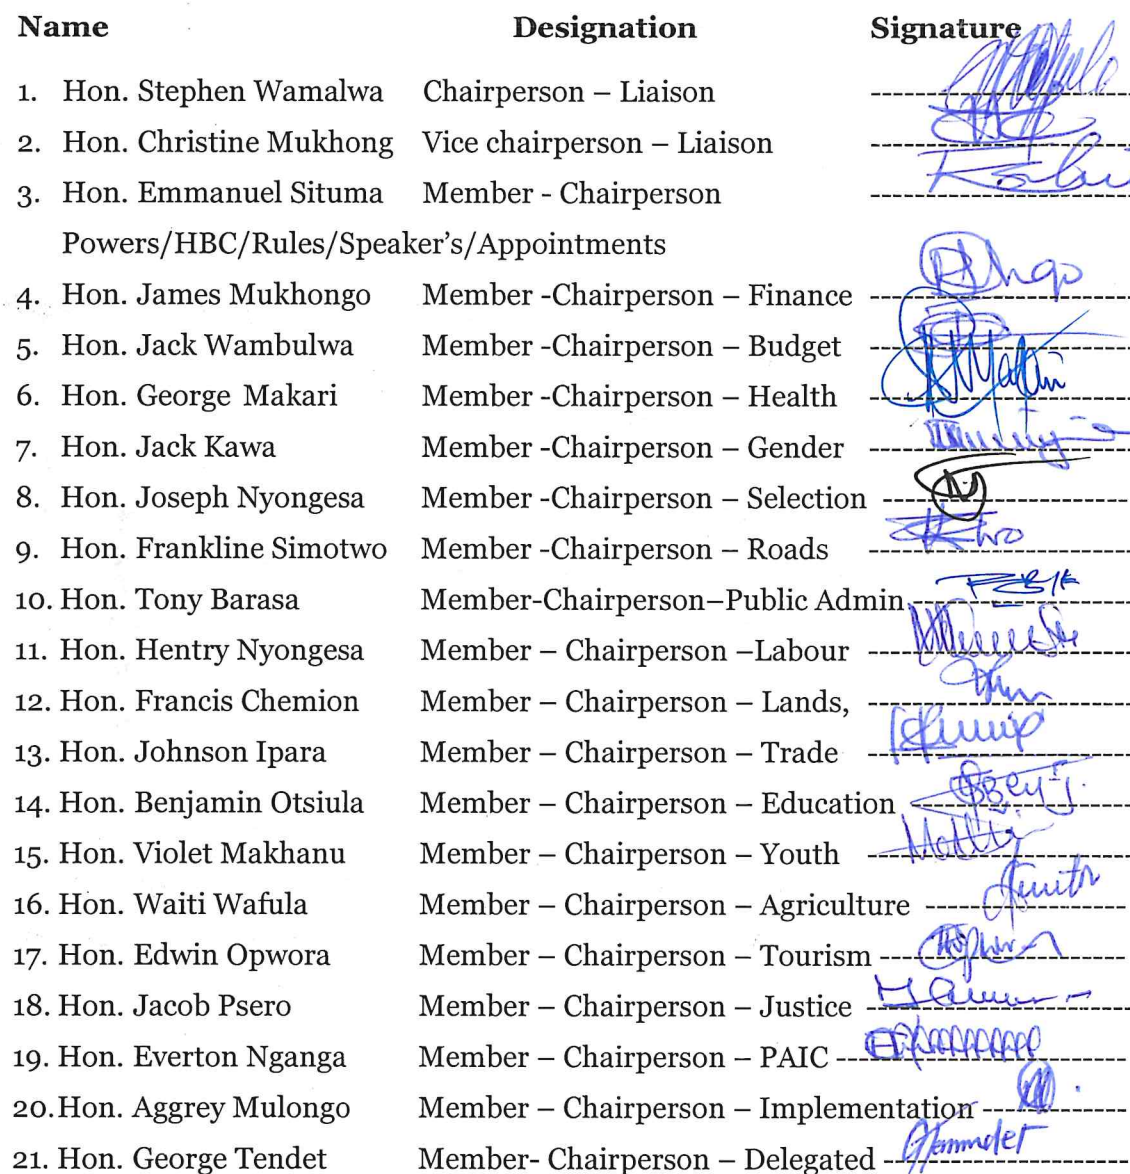 Name Designation Signature
1. Hon. Stephen Wamalwa Chairperson – Liaison
2. Hon. Christine Mukhong Vice chairperson – Liaison
3. Hon. Emmanuel Situma Member - Chairperson
Powers/HBC/Rules/Speaker's/Appointments
4. Hon. James Mukhongo Member -Chairperson – Finance
5. Hon. Jack Wambulwa Member -Chairperson – Budget
6. Hon. George Makari Member -Chairperson – Health
7. Hon. Jack Kawa Member -Chairperson – Gender
8. Hon. Joseph Nyongesa Member -Chairperson – Selection
9. Hon. Frankline Simotwo Member -Chairperson – Roads
10. Hon. Tony Barasa Member-Chairperson–Public Admin
11. Hon. Hentry Nyongesa Member – Chairperson –Labour
12. Hon. Francis Chemion Member – Chairperson – Lands,
13. Hon. Johnson Ipara Member – Chairperson – Trade
14. Hon. Benjamin Otsiula Member – Chairperson – Education
15. Hon. Violet Makhanu Member – Chairperson – Youth
16. Hon. Waiti Wafula Member – Chairperson – Agriculture
17. Hon. Edwin Opwora Member – Chairperson – Tourism
18. Hon. Jacob Psero Member – Chairperson – Justice
19. Hon. Everton Nganga Member – Chairperson – PAIC
20. Hon. Aggrey Mulongo Member – Chairperson – Implementation
21. Hon. George Tendet Member- Chairperson – Delegated